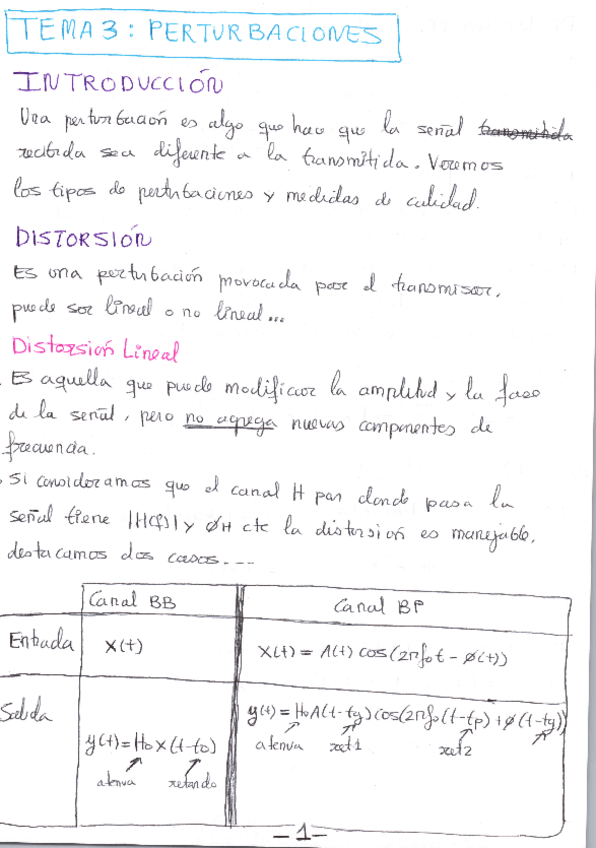 TEMA 3: PERTURBACIONES
INTRODUCCIÓN
Una perturbación es algo que hace que la señal transmitida
recibida sea diferente a la transmitida. Veremos
los tipos de perturbaciones y medidas de calidad.
DISTORSIÓN
Es una perturbación provocada por el transmisor,
puede ser lineal o no lineal...
Distorsión Lineal
. Es aquella que puede modificar la amplitud y la fase
de la señal, pero no agrega nuevas componentes de
frecuencia.
. Si consideramos que el canal H por donde pasa la
señal tiene |H(f)| y ØH cte la distorsión es manejable,
destacamos dos casos....
Canal BB Canal BP
Entrada X(t) X(t) = A(t) cos(2πf₀t - ø(t))
Salida y(t) = H₀X(t-t₀) y(t) = H₀A(t-tg)cos(2πf₀(t-tp)+ø(t-tg))
atenua retardo atenua ret1 ret2
-1-